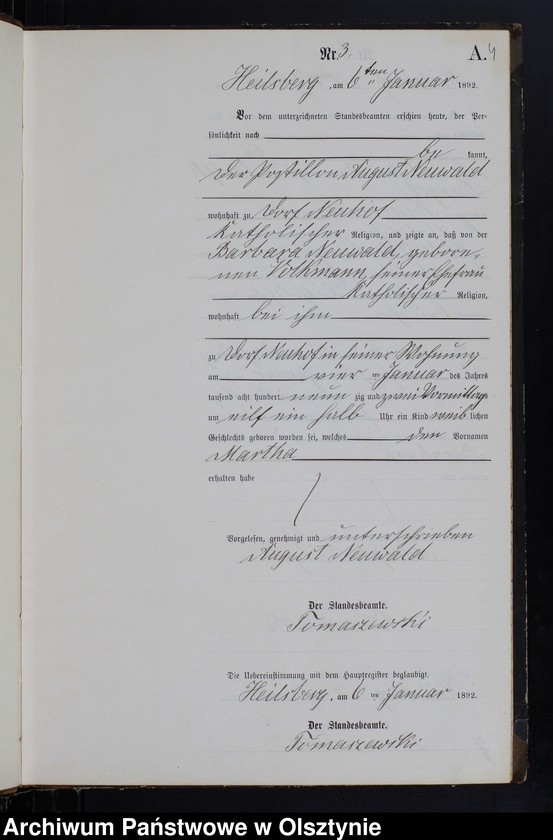 Nr. 3. A. 4
Heilsberg, am 6 ten Januar 1892.
Vor dem unterzeichneten Standesbeamten erschien heute, der Per-
sönlichkeit nach
be kannt,
der Postillon August Neuwald
wohnhaft zu Dorf Neuhof
katholischer Religion, und zeigte an, daß von der
Barbara Neuwald, gebore-
nen Volkmann, seiner Ehefrau
katholischer Religion,
wohnhaft bei ihm
zu Dorf Neuhof in seiner Wohnung
am vier ten Januar des Jahres
tausend acht hundert neun zig und zwei Vormittags
um eilf ein halb Uhr ein Kind weib lichen
Geschlechts geboren worden sei, welches den Vornamen
Martha
erhalten habe
Vorgelesen, genehmigt und unterschrieben
August Neuwald
Der Standesbeamte.
Tomaszewski
Die Uebereinstimmung mit dem Hauptregister beglaubigt.
Heilsberg, am 6 ten Januar 1892.
Der Standesbeamte.
Tomaszewski
Archiwum Państwowe w Olsztynie